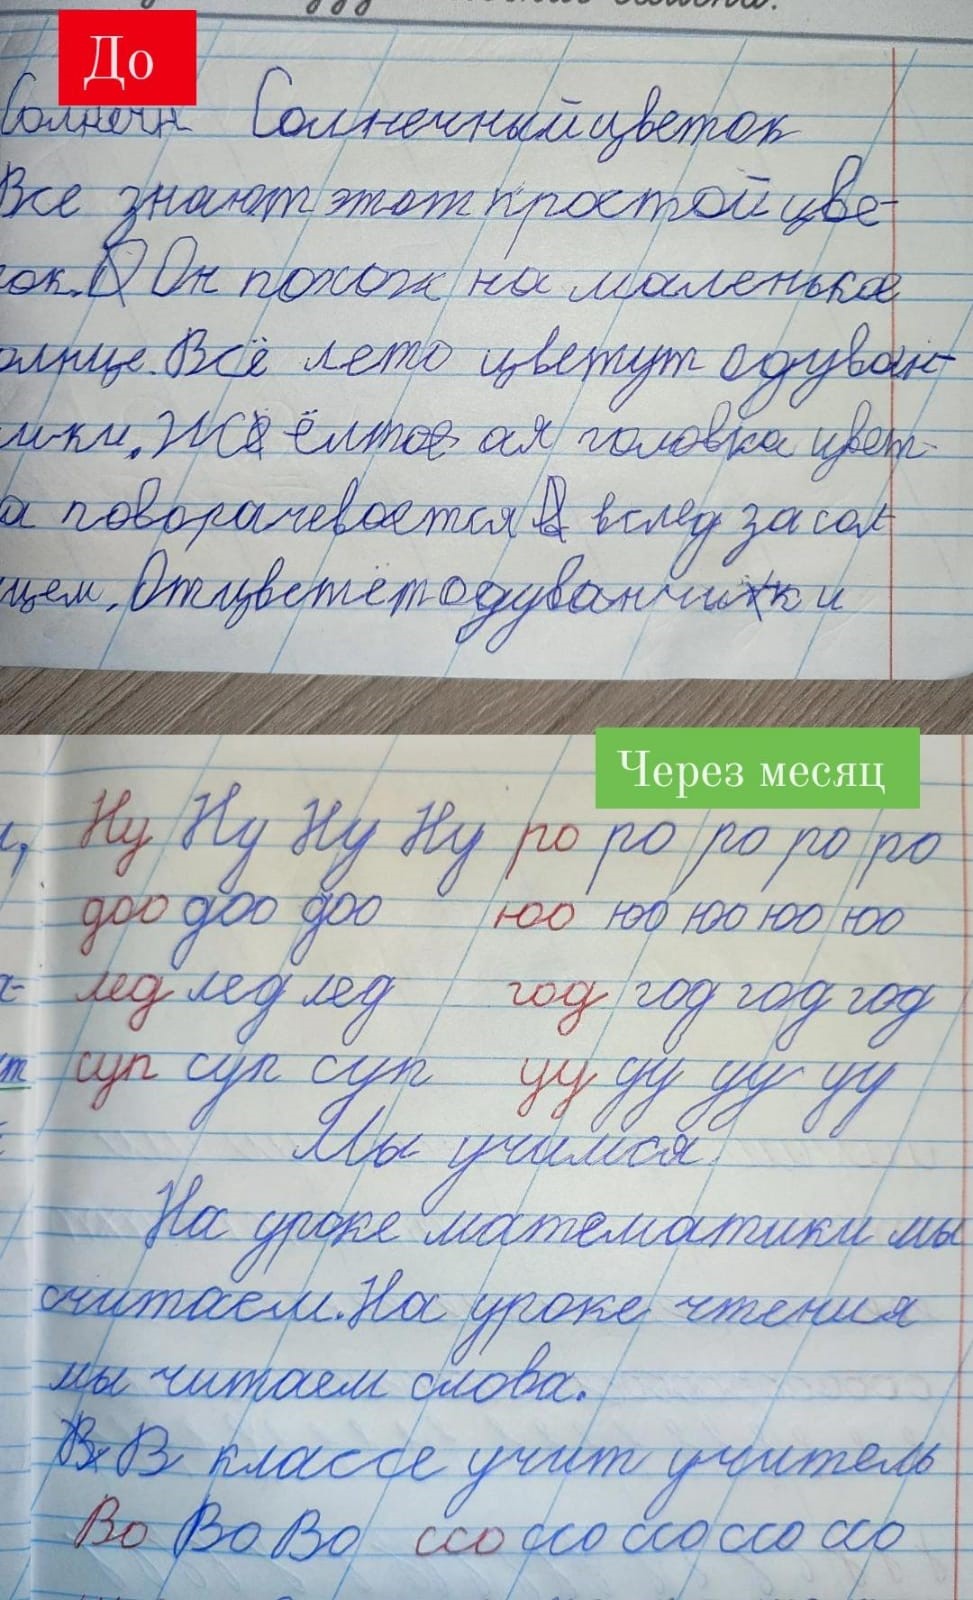 До
Солнечн Солнечный цветок
Все знают этот простой цве-
ок. Он похож на маленькое
олнце. Всё лето цветут одуван-
ики. Жёлтоая головка цвет-
а поворачевается вслед за сол-
цем. Отцветёт одуванчик и
Через месяц
Ну Ну Ну Ну ро ро ро ро ро
доо доо доо юо юо юо юо юо
лед лед лед год год год год
суп суп суп уу уу уу уу
Мы учимся.
На уроке математики мы
считаем. На уроке чтения
мы читаем слова.
В В классе учит учитель
Во Во Во ссо ссо ссо ссо ссо